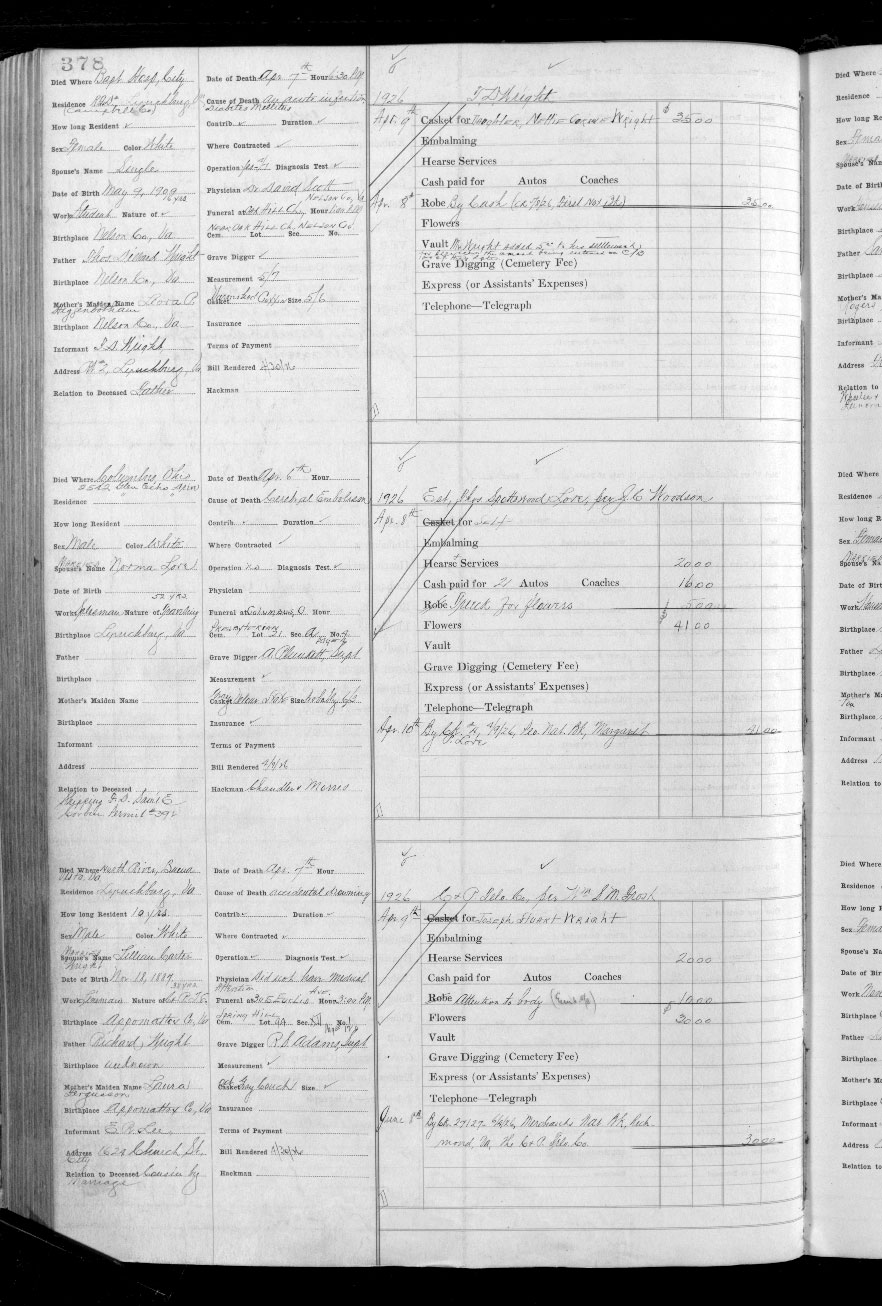 378
Died Where Bapt Hosp, City
Residence Lynchburg, Va
(Campbell Co)
How long Resident
Sex Female Color White
Spouse's Name Single
Date of Birth May 9, 1909
16 yrs
Work Student Nature of
Birthplace Nelson Co, Va
Father Richard Wright
Birthplace Nelson Co, Va
Mother's Maiden Name Lora P.
Higginbotham
Birthplace Nelson Co, Va
Informant T. D. Wright
Address #2, Lynchburg, Va
Relation to Deceased Father
Date of Death Apr 7th Hour 6:30 PM
Cause of Death
Diabetes Mellitus
Contrib. Duration
Where Contracted
Operation Diagnosis Test
Physician Dr David Scott
Nelson Co, Va
Funeral at Oak Hill Ch, Hour
Near Oak Hill Ch, Nelson Co
Cem. Lot Sec. No.
Grave Digger
Measurement 5/7
Casket Size 5/6
Insurance
Terms of Payment
Bill Rendered 4/30/26
Hackman
1926 T. D. Wright
Apr. 9th Casket for Daughter, Nettie Wright $ 35 00
Embalming
Hearse Services
Cash paid for Autos Coaches
Apr 8th Robe By Cash 35 00
Flowers
Vault Mr Wright added 5.00 to his settlement
Grave Digging (Cemetery Fee)
Express (or Assistants' Expenses)
Telephone—Telegraph
Died Where Columbus, Ohio
2542 Glen Echo Drive
Residence "
How long Resident
Sex Male Color White
Married
Spouse's Name Norma Love
Date of Birth
52 yrs
Work Salesman Nature of
Birthplace Lynchburg, Va
Father
Birthplace
Mother's Maiden Name
Birthplace
Informant
Address
Relation to Deceased
Shipping F. D. Sam'l E
Permit # 391
Date of Death Apr. 6th Hour
Cause of Death Cerebral Embolism
Contrib. Duration
Where Contracted
Operation no Diagnosis Test
Physician
Funeral at Columbus, O Hour
Presbyterian
Cem. Lot 21 Sec. A No. 4
Grave Digger A. Plunkett, Supt
Measurement
Casket Gray Size
Insurance
Terms of Payment
Bill Rendered 4/9/26
Hackman Chandler & Morris
1926 Est, Chas. Spottswood Love, per J. C. Woodson
Apr. 8th Casket for Self
Embalming
Hearse Services 20 00
Cash paid for 2 Autos Coaches 16 00
Robe for flowers 5 00
Flowers $ 41 00
Vault
Grave Digging (Cemetery Fee)
Express (or Assistants' Expenses)
Telephone—Telegraph
Apr. 10th By Ck. 4/9/26, Peo. Nat. Bk, Margaret 41 00
P. Love
Died Where North River, Buena
Vista, Va
Residence Lynchburg, Va
How long Resident 10 yrs
Sex Male Color White
Married
Spouse's Name Lillian Carter
Wright
Date of Birth Nov 18, 1887
38 yrs
Work Lineman Nature of C. & P. T. Co
Birthplace Appomattox Co, Va
Father Richard Wright
Birthplace unknown
Mother's Maiden Name Laura
Fergusson
Birthplace Appomattox Co, Va
Informant E. R. Lee
Address 629 Church St.
City
Relation to Deceased Cousin by
Marriage
Date of Death Apr. 7th Hour
Cause of Death accidental drowning
Contrib. Duration
Where Contracted
Operation Diagnosis Test
Physician Did not have medical
attention
Funeral at 305 Euclid Ave Hour 3:00 PM
Spring Hill
Cem. Lot Sec. No.
Grave Digger R. S. Adams, Supt
Measurement
Casket Gray Couch Size
Insurance
Terms of Payment
Bill Rendered 4/30/26
Hackman
1926 C & P Tele. Co, per Wm S. M. Grosh
Apr 9th Casket for Joseph Stuart Wright
Embalming
Hearse Services 20 00
Cash paid for Autos Coaches
Robe Attention to body 10 00
Flowers $ 30 00
Vault
Grave Digging (Cemetery Fee)
Express (or Assistants' Expenses)
Telephone—Telegraph
June 8th By Ck. 27127 6/5/26, Merchants Nat. Bk, Rich-
mond, Va, The C & P. Tele. Co. 30 00
Died Where
Residence
How long Re
Sex
Spouse's Nam
Date of Birth
Work
Birthplace
Father
Birthplace
Mother's Ma
Rogers
Birthplace
Informant
Address
Relation to
Died Where
Residence
How long R
Sex
Spouse's Na
Date of Birt
Work
Birthplace
Father
Birthplace
Mother's M
Birthplace
Informant
Address
Relation to
Died Where
Residence
How long
Sex
Spouse's N
Date of Bi
Work
Birthplace
Father
Birthplace
Mother's M
Birthplace
Informant
Address
Relation to